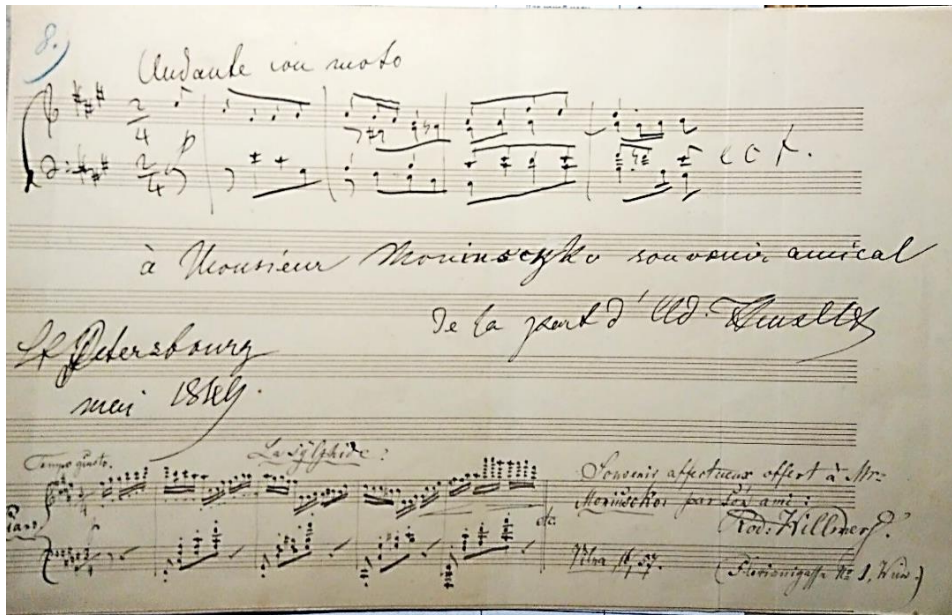 8.)
Andante con moto
p
ect.
à Monsieur souvenir amical
de la part d'Ad. Henselt
St Petersbourg
mai 1849.
Tempo giusto. La Sylphide:
Piano
p
etc.
Souvenir affectueux offert à Mr:
par son ami:
Rod: Willmers.
Vilna
(Florianigasse No 1, Wien.)